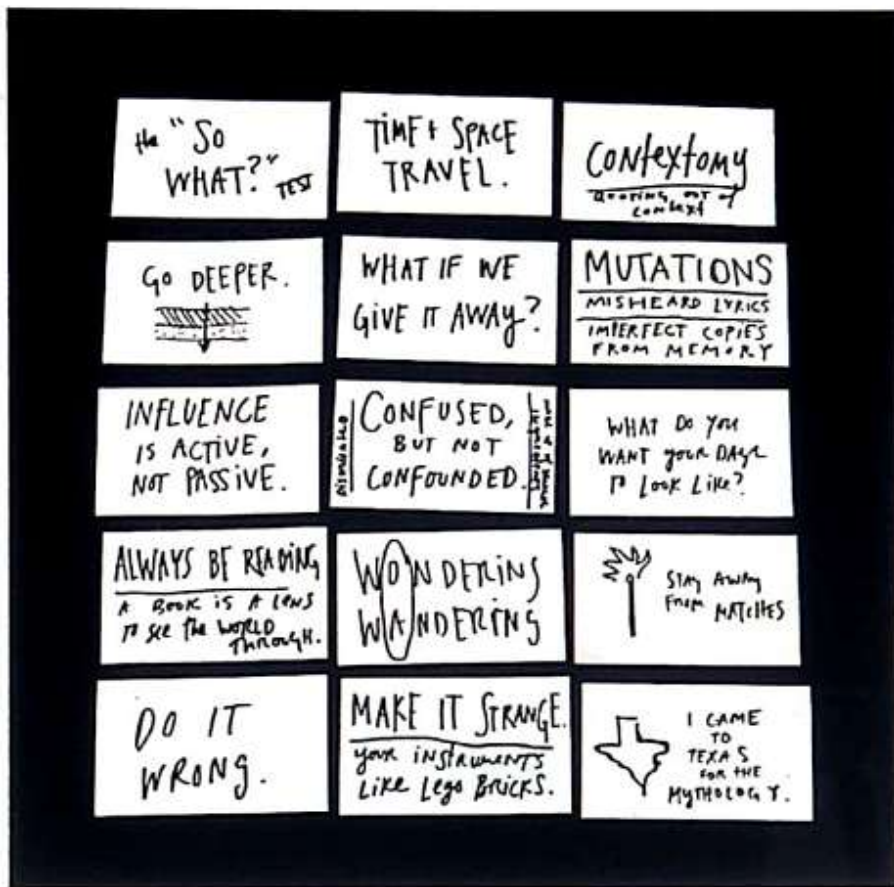 the "SO
WHAT?" TEST
TIME + SPACE
TRAVEL.
CONTEXTOMY
QUOTING OUT OF
CONTEXT
GO DEEPER.
WHAT IF WE
GIVE IT AWAY?
MUTATIONS
MISHEARD LYRICS
IMPERFECT COPIES
FROM MEMORY
INFLUENCE
IS ACTIVE,
NOT PASSIVE.
CONFUSED,
BUT NOT
CONFOUNDED.
WHAT DO YOU
WANT your DAYS
TO LOOK LIKE?
ALWAYS BE READING
A BOOK IS A LENS
TO SEE THE WORLD
THROUGH.
WONDERING
WANDERING
STAY AWAY
FROM MATCHES
DO IT
WRONG.
MAKE IT STRANGE.
your INSTRUMENTS
LIKE LEGO BRICKS.
I CAME
TO
TEXAS
FOR THE
MYTHOLOGY.